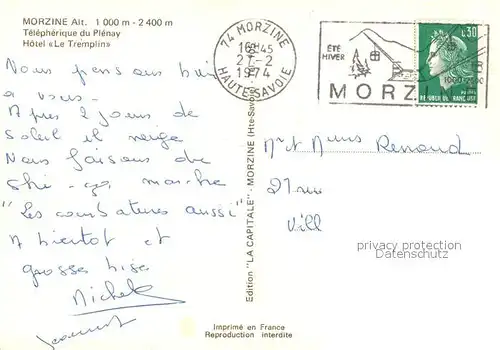 MORZINE Alt. 1 000 m - 2 400 m
Téléphérique du Plénay
Hôtel «Le Tremplin»
Nous pensons bien
à vous.
Après 2 jours de
soleil il neige
Nous faisons du
ski - ça marche
"Les combatures aussi"
A bientot et
grosses bises
Michel
Jeannot
74 MORZINE
16H45
27-2
1974
HAUTE-SAVOIE
ÉTÉ
HIVER
1000
MORZINE
0,30
REPUBLIQUE FRANCAISE
Mr et Mme Renaud
21 rue
Vill
privacy protection
Datenschutz
Edition "LA CAPITALE" - MORZINE (Hte-Savoie)
Imprimé en France
Reproduction interdite